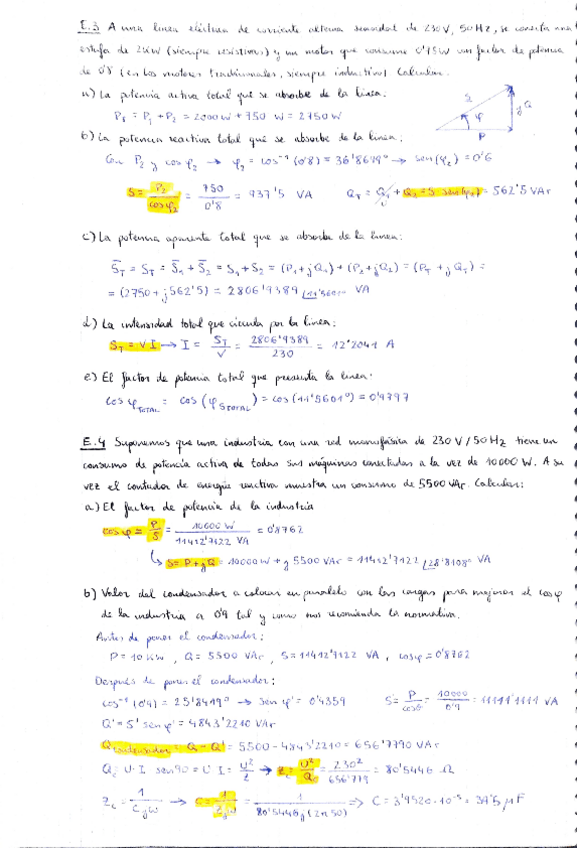 E.3 A una linea eléctrica de corriente alterna senoidal de 230V, 50Hz, se conecta una
estufa de 2kW (siempre resistivas) y un motor que consume 0'75W con factor de potencia
de 0'8 (en los motores tradicionales, siempre inductivo). Calcular.
a) La potencia activa total que se absorbe de la linea.
P_T = P_1 + P_2 = 2000W + 750 W = 2750 W
S φ P jQ
b) La potencia reactiva total que se absorbe de la linea.
Con P_2 y cos φ_2 → φ_2 = cos^-1 (0'8) = 36'8699° → sen(φ_2) = 0'6
S = P_2 / cos φ_2 = 750 / 0'8 = 937'5 VA Q_T = Q_1 + Q_2 = S sen(φ_2) = 562'5 VAr
c) La potencia aparente total que se absorbe de la linea:
S_T = S_T = S_1 + S_2 = S_1 + S_2 = (P_1 + jQ_1) + (P_2 + jQ_2) = (P_T + jQ_T) =
= (2750 + j562'5) = 2806'9389 |11'5601° VA
d) La intensidad total que circula por la linea:
S_T = V I → I = S_T / V = 2806'9389 / 230 = 12'2041 A
e) El factor de potencia total que presenta la linea.
cos φ_TOTAL = cos (φ_S TOTAL) = cos (11'5601°) = 0'9797
E.4 Suponemos que una industria con una red monofásica de 230 V / 50 Hz tiene un
consumo de potencia activa de todas sus máquinas conectadas a la vez de 10000 W. A su
vez el contador de energia reactiva muestra un consumo de 5500 VAr. Calcular:
a) El factor de potencia de la industria
cos φ = P / S = 10000 W / 11412'7122 VA = 0'8762
↳ S = P + jQ = 10000 W + j 5500 VAr = 11412'7122 |28'8108° VA
b) Valor del condensador a colocar en paralelo con las cargas para mejorar el cos φ
de la industria a 0'9 tal y como nos recomienda la normativa.
Antes de poner el condensador:
P = 10 KW, Q = 5500 VAr, S = 11412'7122 VA, cos φ = 0'8762
Después de poner el condensador:
cos^-1 (0'9) = 25'8419° → sen φ' = 0'4359 S' = P / cos θ = 10000 / 0'9 = 11111'1111 VA
Q' = S' sen φ' = 4843'2210 VAr
Q condensador = Q - Q' = 5500 - 4843'2210 = 656'7790 VAr
Q_c = U · I sen 90 = U I = U² / Z → Z_c = U² / Q_c = 230² / 656'779 = 80'5446 Ω
Z_c = 1 / C j W → C = 1 / Z_c j W = 1 / 80'5446 j (2π 50) ⇒ C = 3'9520 · 10^-5 = 39'5 μF